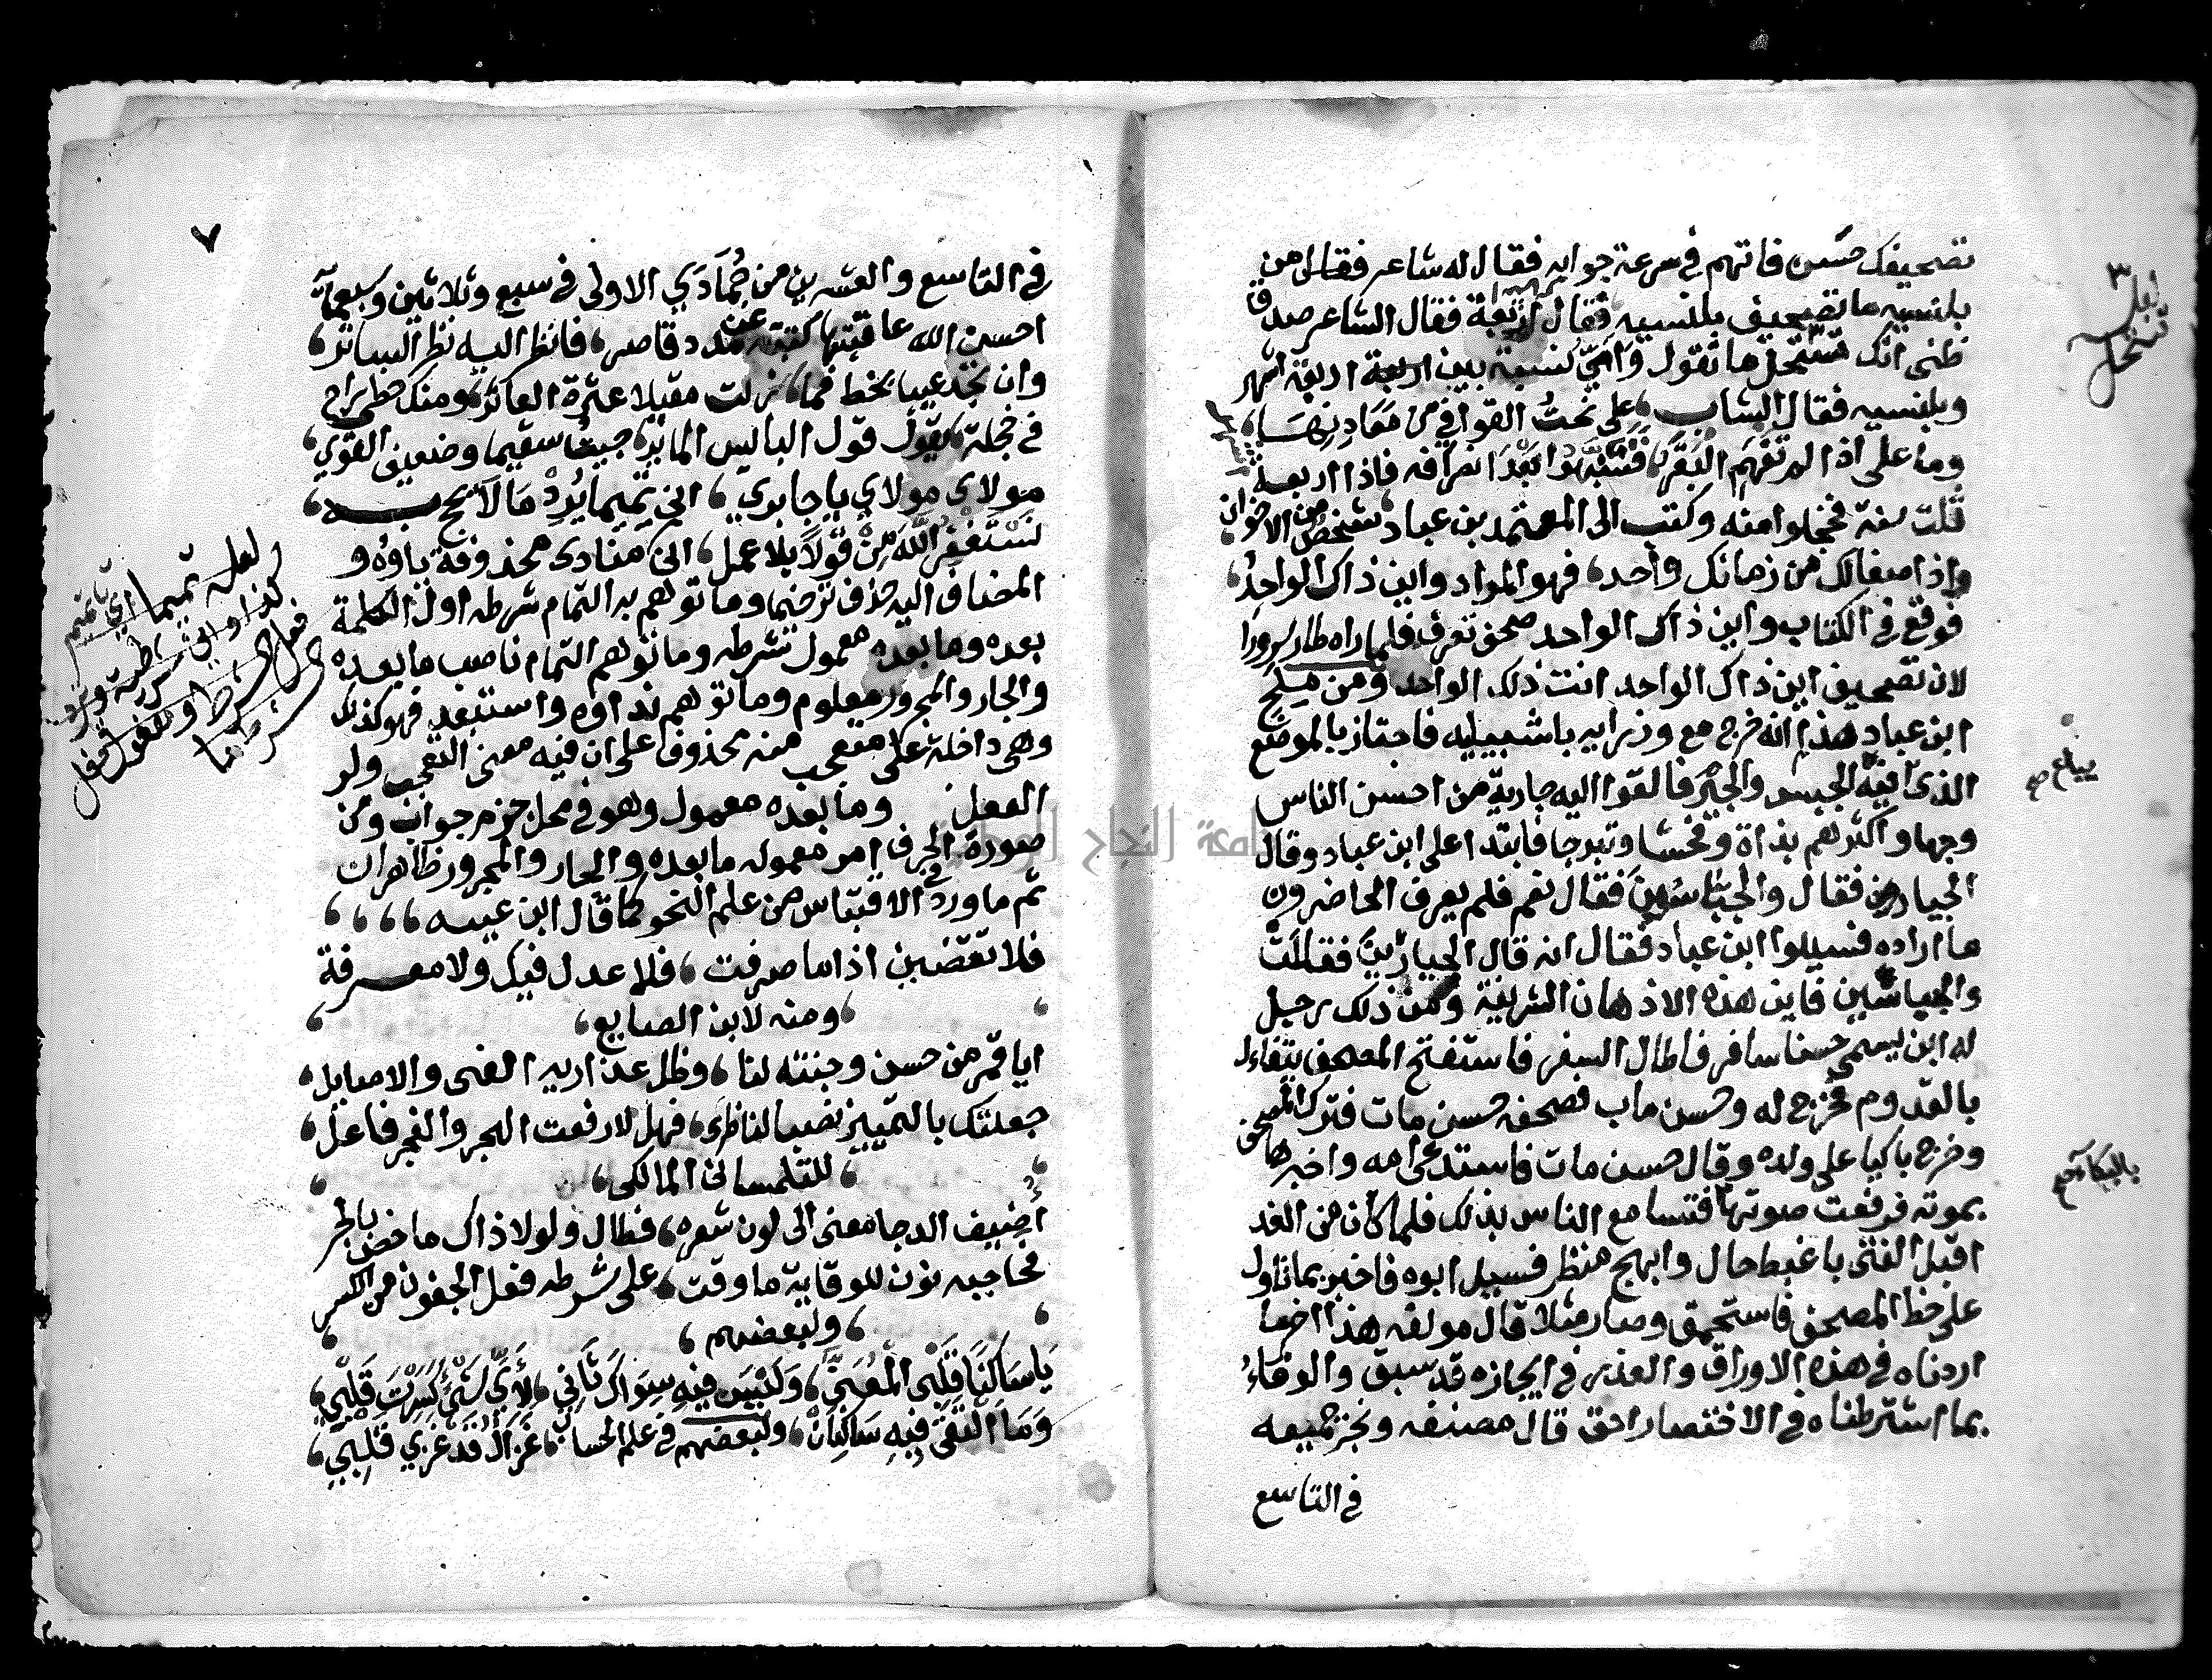 تصحيفك حسن فاتهم في سرعة جوابه فقال له شاعر فقال من
بلنسيه ما تصحيف بلنسيه فقال اربعة فقال الشاعر صدق
ظنى انك تنتحل ما تقول وأي نسبة بين اربعة اربعة اشهر
وبلنسيه فقال الشاب على نحت القوافي من معادنها
وما على اذا لم تفهم البقر فتنبهوا بعد انصرافه فاذا اربعة
ثلث سنة فخجلوا منه وكتب الى المعتمد بن عباد شخص من الاخوان
واذا صفا لك من زمانك واحد فهو المراد واين ذاك الواحد
فوقع في الكتاب واين ذاك الواحد صحف تعرف فلما راه طار سرورا
لان تصحيف اين ذاك الواحد انت ذلك الواحد ومن ملح
ابن عباد هذا انه خرج مع وزرايه باشبيليه فاجتاز بالموضع
الذى فيه الجبس والجير فالقوا اليه جارية من احسن الناس
وجها واكثرهم بذاة وفحشا وتبرجا فابتدا على ابن عباد وقال
الجيارين فقال والجباسين فقال نعم فلم يعرف الحاضرون
ما اراده فسيلوا ابن عباد فقال انه قال الحيا زين فقالت
والحياشين فاين هذه الاذهان الشريفة ومن ذلك رجل
له ابن يسمى حسنا سافر فاطال السفر فاستفتح المصحف يتفاءل
بالقدوم فخرج له وحسن ماب فصحفه حسن مات فترك المصحف
وخرج باكيا على ولده وقال حسن مات فاستدعى امه واخبرها
بموته فرفعت صوتها فتسامع الناس بذلك فلما كان من الغد
اقبل الفتى باغبط حال وابهج منظر فسيل ابوه فاخبر بما تاول
على خط المصحف فاستحمق وصار مثلا قال مولفه هذا اخر ما
اردناه في هذه الاوراق والعذر في ايجازه قد سبق والوفاء
بما اشترطناه في الاختصار احق قال مصنفه ونجز جميعه
في التاسع
لعله
تنتحل
يباع صح
بالبكاء صح
٧
في التاسع والعشرين من جمادي الاولى في سبع وثلاثين وسبعمائة
احسن الله عاقبتها كتبته عن مدد قاصر فانظر اليه نظر الساتر
وان تجد عيبا بخط فما نزلت مقيلا عثرة العاثر ومنك خطى راح
في خجلة يقول قول البايس الماير جيت سقيما وضعيف القوي
مولاى مولاي يا جابري انى تميما يرد ما لا يحبه
نستغفر الله من قولا بلا عمل انى منادى محذوفة ياوه و
المضاف اليه حذف ترخيما وما توهم به التمام شرطه اول الكلمة
بعده وما بعده معمول شرطه وما توهم التمام ناصب ما بعده
والجار والمجرور معلوم وما توهم نداوه واستبعد فهو كذلك
وهى داخلة على متعجب منه محذوف على ان فيه معنى التعجب ولو
الفعل وما بعده معمول وهو في محل جزم جواب ومن
صورة الحرف امر معموله ما بعده والجار والمجرور ظاهران
ثم ما ورد في الاقتباس من علم النحو كما قال ابن عيينه
فلا تغضبن اذا ما صرفت فلا عدل فيك ولا معرفة
ومنه لابن الصايغ
ايا قمر من حسن وجنته لنا وظل عذاريه الضحى والاصايل
جعلتك بالتمييز نصبا لناظرى فهل لا رفعت الهجر والهجر فاعل
للتلمساني المالكى
أضيف الدجا معنى الى لون شعره فطال ولولا ذاك ما خص بالجر
فحاجبه نون للوقاية ما وقت على شرطه فعل الجفون من الكسر
ولبعضهم
يا ساكنا قلبي المعنى وليس فيه سواك ثاني لأي شئ كسرت قلبي
وما التقى فيه ساكنان ولبعضهم في علم الحساب غزال قد غزي قلبي
لعله تميما اي يا تميم